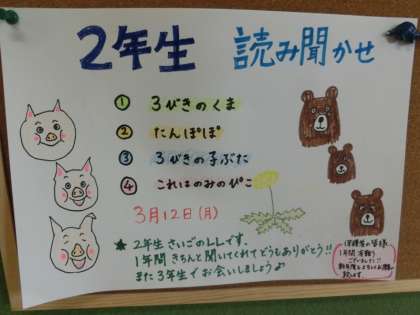 2年生 読み聞かせ
① 3びきのくま
② たんぽぽ
③ 3びきの子ぶた
④ これはのみのぴこ
3月12日(月)
★ 2年生 さいごのLLです。
1年間 きちんと聞いてくれてどうもありがとう!!
また3年生でお会いしましょう♪
保護者の皆様
1年間 有難う
ございました!!